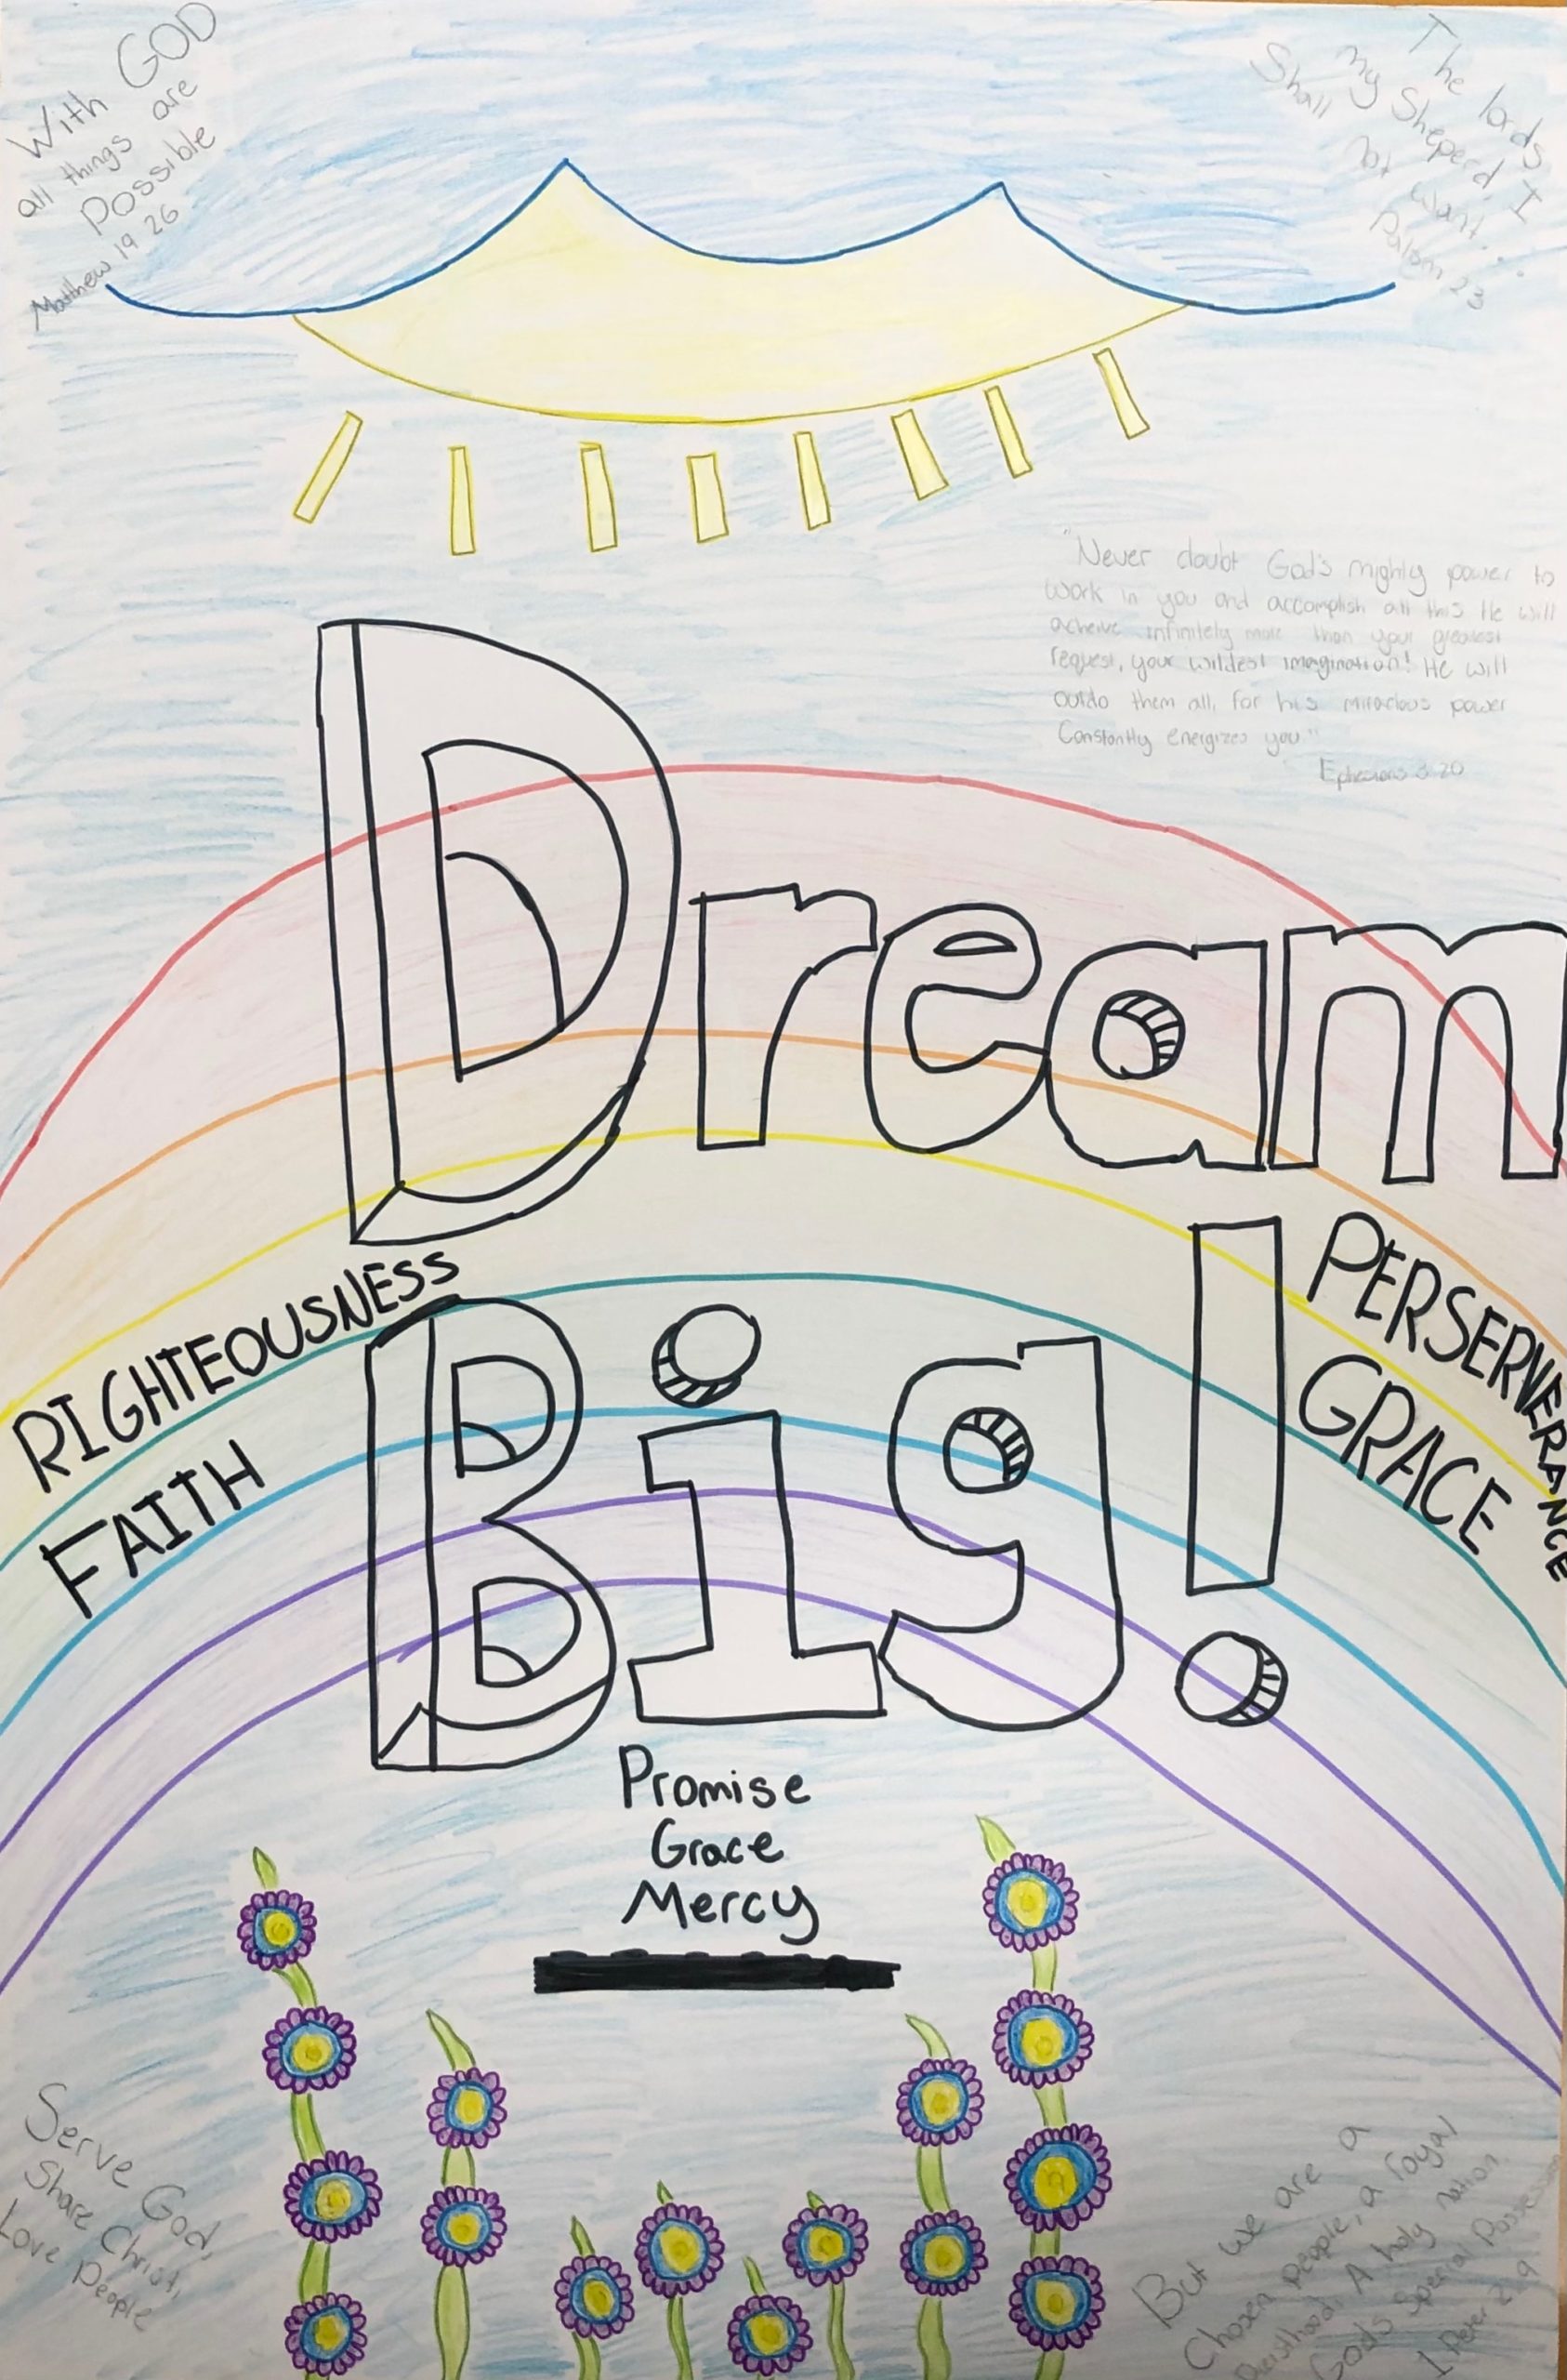 With GOD
all things are
Possible
Matthew 19 26
The lords
my Sheperd, I
Shall not want...
Palsm 23
"Never doubt God's mighty power to
work in you and accomplish all this He will
acheive infinitely more than your greatest
request, your wildest imagination! He will
outdo them all, for his miraclous power
Constantly energizes you"
Ephesians 3:20
Dream
Big!
RIGHTEOUSNESS
FAITH
PERSERVERANCE
GRACE
Promise
Grace
Mercy
Serve God,
Share Christ,
Love People
But we are a
Chosen people, a royal
Priesthood, A holy nation,
God's Special Possession
1 Peter 2:9